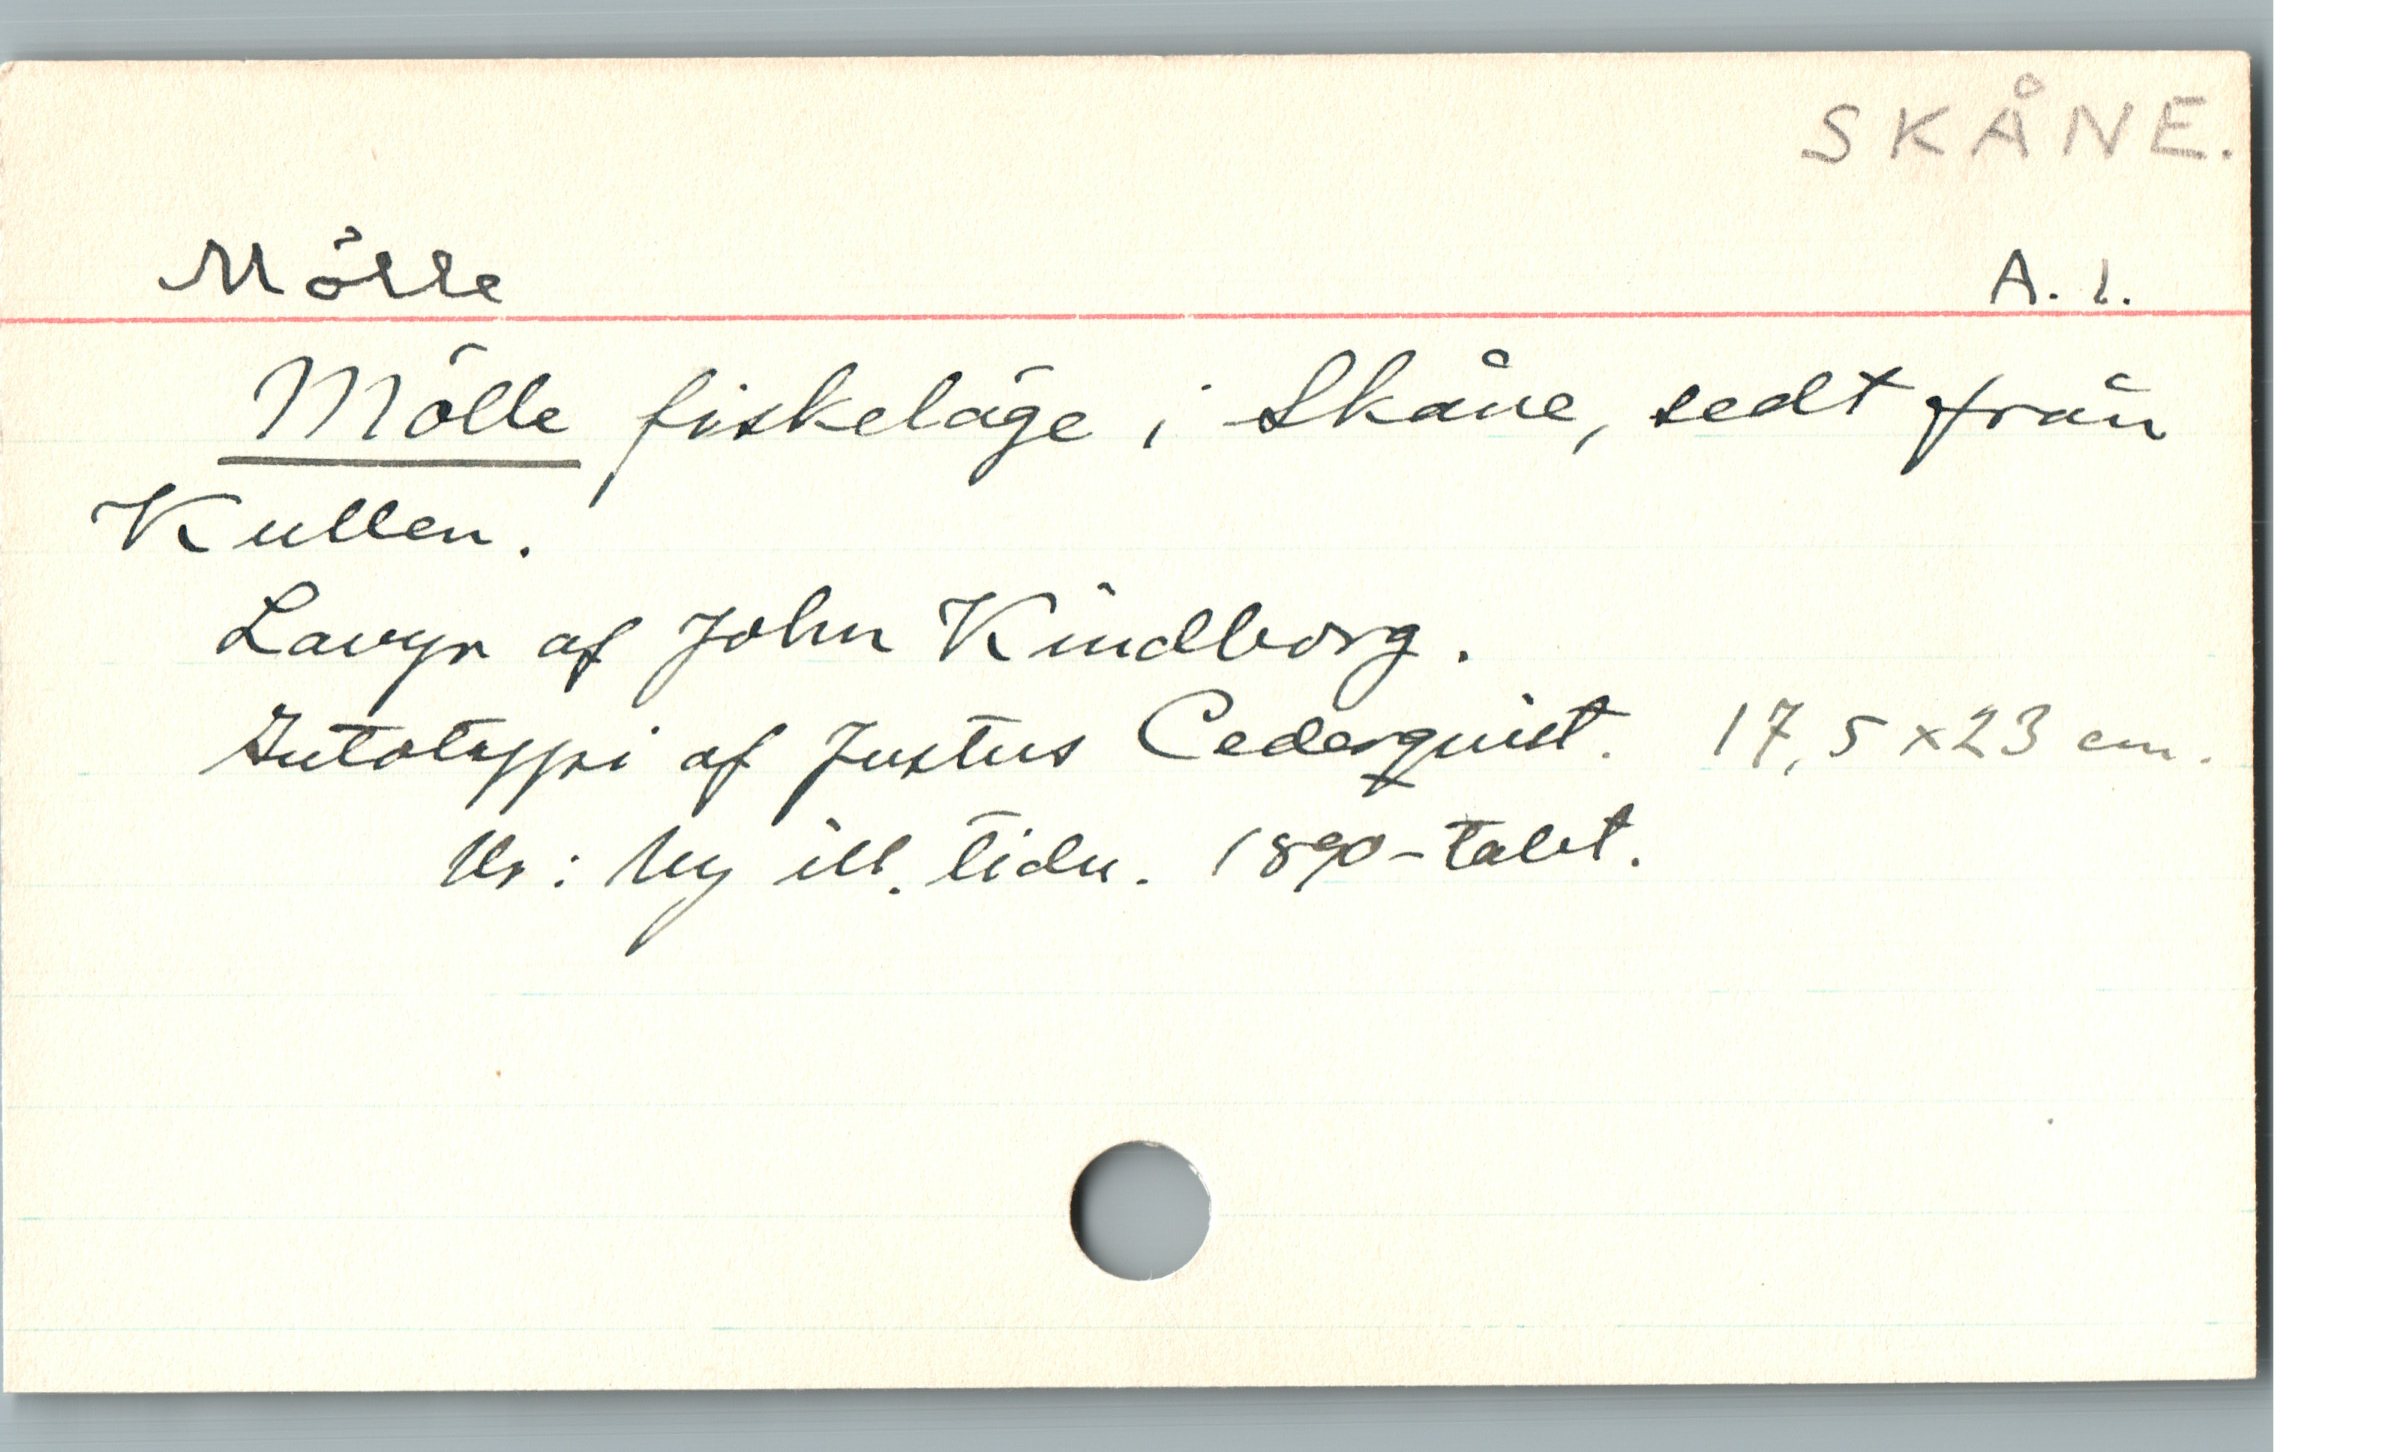 SKÅNE.
Mölle A. l.
Mölle fiskeläge i Skåne, sedt från
Kullen.
Lavyr af John Kindborg.
Autotypi af Justus Cederquist. 17,5 x 23 cm.
Ur: Ny ill. tidn. 1890-talet.